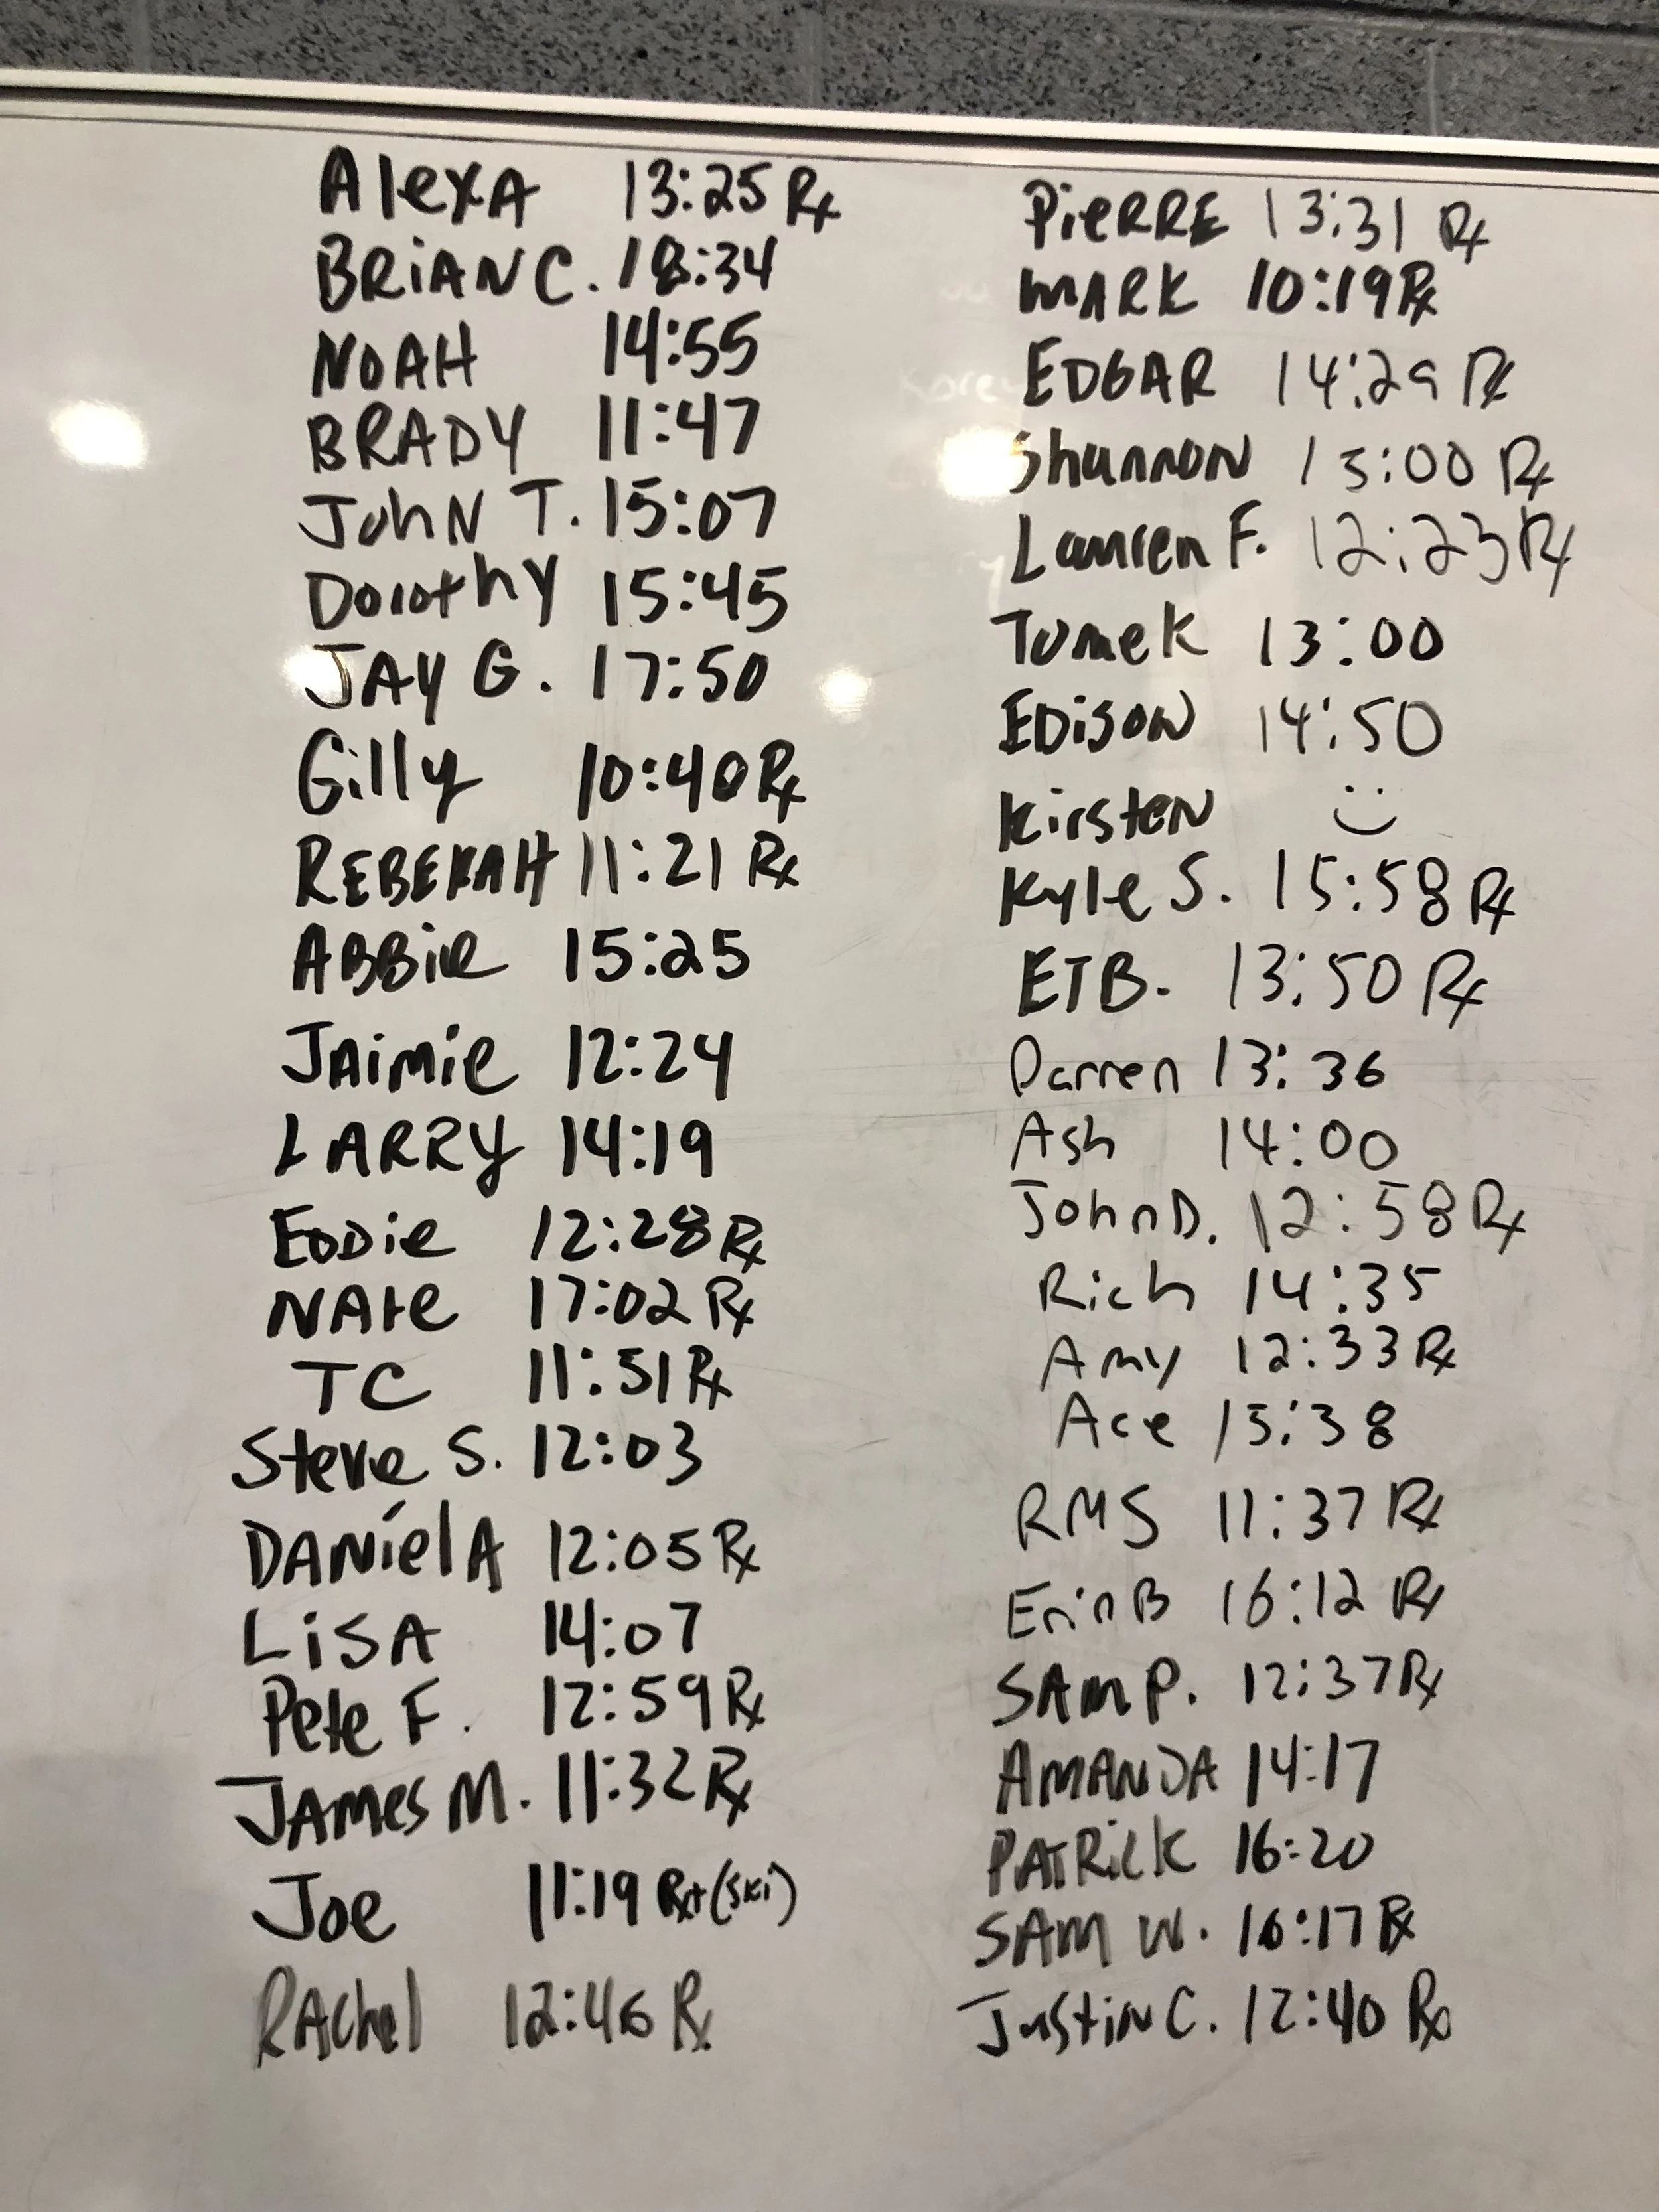 AlexA 13:25 Rx
BRiAN C. 18:34
NOAH 14:55
BRADY 11:47
JohN T. 15:07
Dorothy 15:45
JAY G. 17:50
Gilly 10:40 Rx
REBEKAH 11:21 Rx
ABBie 15:25
JAimie 12:24
LARRY 14:19
EDDie 12:28 Rx
NAte 17:02 Rx
TC 11:51 Rx
Steve S. 12:03
DANielA 12:05 Rx
LiSA 14:07
Pete F. 12:59 Rx
JAMes M. 11:32 Rx
Joe 11:19 Rx+ (Ski)
RAchel 12:46 Rx
PieRRE 13:31 Rx
MARK 10:19 Rx
EDGAR 14:29 Rx
ShannON 13:00 Rx
Lauren F. 12:23 Rx
Tomek 13:00
EDiSON 14:50
KirsteN :)
Kyle S. 15:58 Rx
ETB. 13:50 Rx
Darren 13:36
Ash 14:00
John D. 12:58 Rx
Rich 14:35
Amy 12:33 Rx
Ace 15:38
RMS 11:37 Rx
Erin B 16:12 Rx
SAM P. 12:37 Rx
AMANDA 14:17
PATRiCK 16:20
SAM W. 16:17 Rx
JustiN C. 12:40 Rx